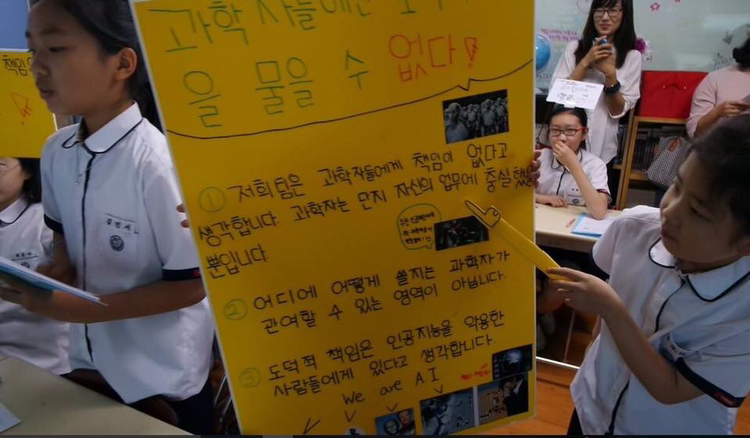 과학자들에겐
을 물을 수 없다!
① 저희팀은 과학자들에게 책임이 없다고
생각합니다. 과학자는 단지 자신의 업무에 충실했을
뿐입니다.
② 어디에 어떻게 쓸지는 과학자가
관여할 수 있는 영역이 아닙니다.
③ 도덕적 책임은 인공지능을 악용한
사람들에게 있다고 생각합니다.
We are A.I
책임이